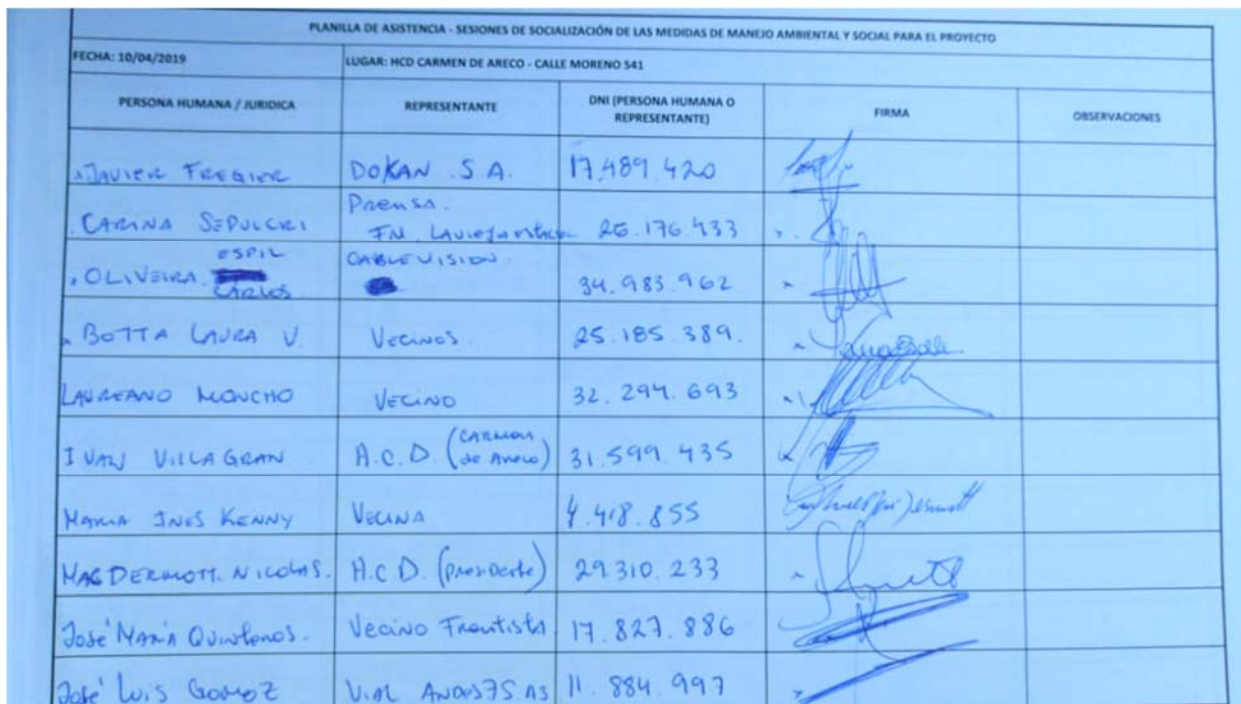 PLANILLA DE ASISTENCIA - SESIONES DE SOCIALIZACIÓN DE LAS MEDIDAS DE MANEJO AMBIENTAL Y SOCIAL PARA EL PROYECTO
FECHA: 10/04/2019 LUGAR: HCD CARMEN DE ARECO - CALLE MORENO 541
PERSONA HUMANA / JURIDICA REPRESENTANTE DNI (PERSONA HUMANA O REPRESENTANTE) FIRMA OBSERVACIONES
JAVIER FREGIER DOKAN S.A. 17.489.420
CARINA SEPULCRI Prensa. FM 26.176.433
OLIVEIRA ESPIL CARLOS CABLEVISION 34.983.962
BOTTA LAURA V. VECINOS. 25.185.389.
LAUREANO MONCHO VECINO 32.294.693
IVAN VILLAGRAN H.C.D. (CARMEN de Areco) 31.599.435
MARIA INES KENNY VECINA 4.418.855
MAC DERMOTT. NICOLAS. H.C D. (Presidente) 29.310.233
José MARÍA Quintanos. Vecino Frentista 17.827.886
José Luis Gomez VIAL 11.884.997